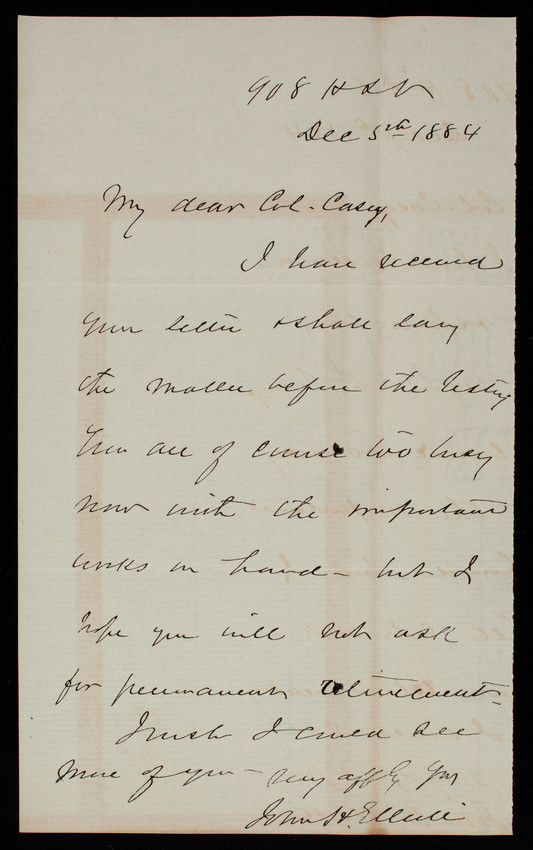 908 H St
Dec 5th 1884
My dear Col. Casey,
I have received
your letter & shall lay
the matter before the Vestry
You are of course too busy
now with the important
works on hand - but I
hope you will not ask
for permanent retirement -
I wish I could see
more of you - very affly yrs
John H. Elliott